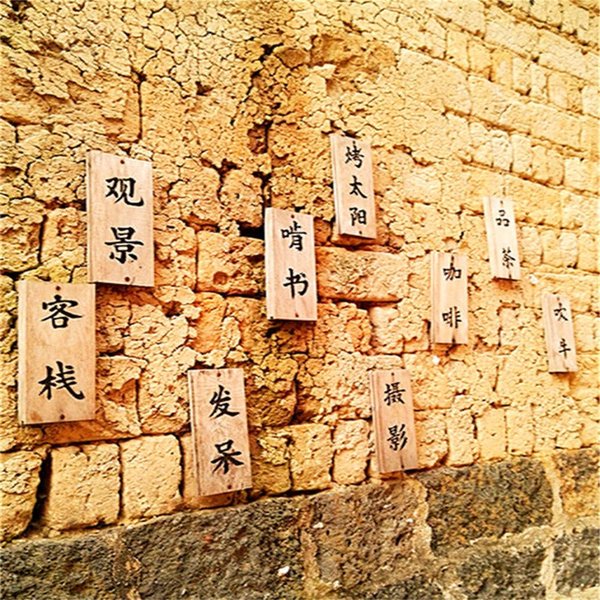 观景
客栈
发呆
啃书
烤太阳
摄影
咖啡
品茶
吹牛